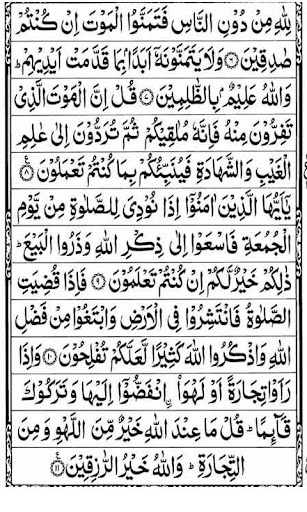 لِلّٰهِ مِنْ دُوْنِ النَّاسِ فَتَمَنَّوُا الْمَوْتَ اِنْ كُنْتُمْ
صٰدِقِيْنَ ﴿٦﴾ وَلَا يَتَمَنَّوْنَهٗۤ اَبَدًۢا بِمَا قَدَّمَتْ اَيْدِيْهِمْ ؕ
وَاللّٰهُ عَلِيْمٌۢ بِالظّٰلِمِيْنَ ﴿٧﴾ قُلْ اِنَّ الْمَوْتَ الَّذِيْ
تَفِرُّوْنَ مِنْهُ فَاِنَّهٗ مُلٰقِيْكُمْ ثُمَّ تُرَدُّوْنَ اِلٰى عٰلِمِ
الْغَيْبِ وَالشَّهَادَةِ فَيُنَبِّئُكُمْ بِمَا كُنْتُمْ تَعْمَلُوْنَ ﴿٨﴾
يٰۤاَيُّهَا الَّذِيْنَ اٰمَنُوْۤا اِذَا نُوْدِيَ لِلصَّلٰوةِ مِنْ يَّوْمِ
الْجُمُعَةِ فَاسْعَوْا اِلٰى ذِكْرِ اللّٰهِ وَذَرُوا الْبَيْعَ ؕ
ذٰلِكُمْ خَيْرٌ لَّكُمْ اِنْ كُنْتُمْ تَعْلَمُوْنَ ﴿٩﴾ فَاِذَا قُضِيَتِ
الصَّلٰوةُ فَانْتَشِرُوْا فِي الْاَرْضِ وَابْتَغُوْا مِنْ فَضْلِ
اللّٰهِ وَاذْكُرُوا اللّٰهَ كَثِيْرًا لَّعَلَّكُمْ تُفْلِحُوْنَ ﴿١٠﴾ وَاِذَا
رَاَوْا تِجَارَةً اَوْ لَهْوَا اِ۟نْفَضُّوْۤا اِلَيْهَا وَتَرَكُوْكَ
قَآئِمًا ؕ قُلْ مَا عِنْدَ اللّٰهِ خَيْرٌ مِّنَ اللَّهْوِ وَمِنَ
التِّجَارَةِ ؕ وَاللّٰهُ خَيْرُ الرّٰزِقِيْنَ ﴿١١﴾